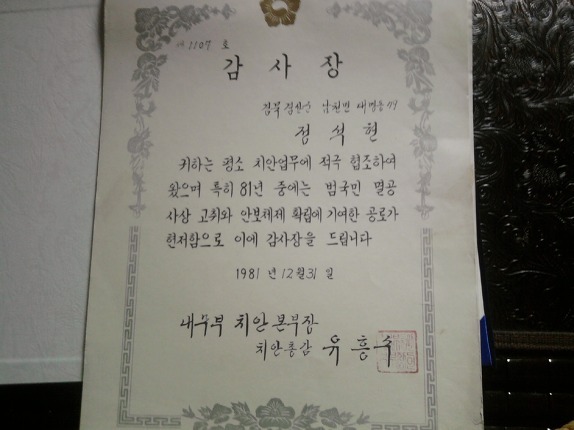 제 1107 호
감 사 장
경북 경산군 남천면 대명동 119
정 석 현
귀하는 평소 치안업무에 적극 협조하여
왔으며 특히 81년 중에는 범국민 멸공
사상 고취와 안보태제 확립에 기여한 공로가
현저함으로 이에 감사장을 드립니다
1981 년 12 월 31 일
내무부 치안본부장
치안총감 유 흥 수